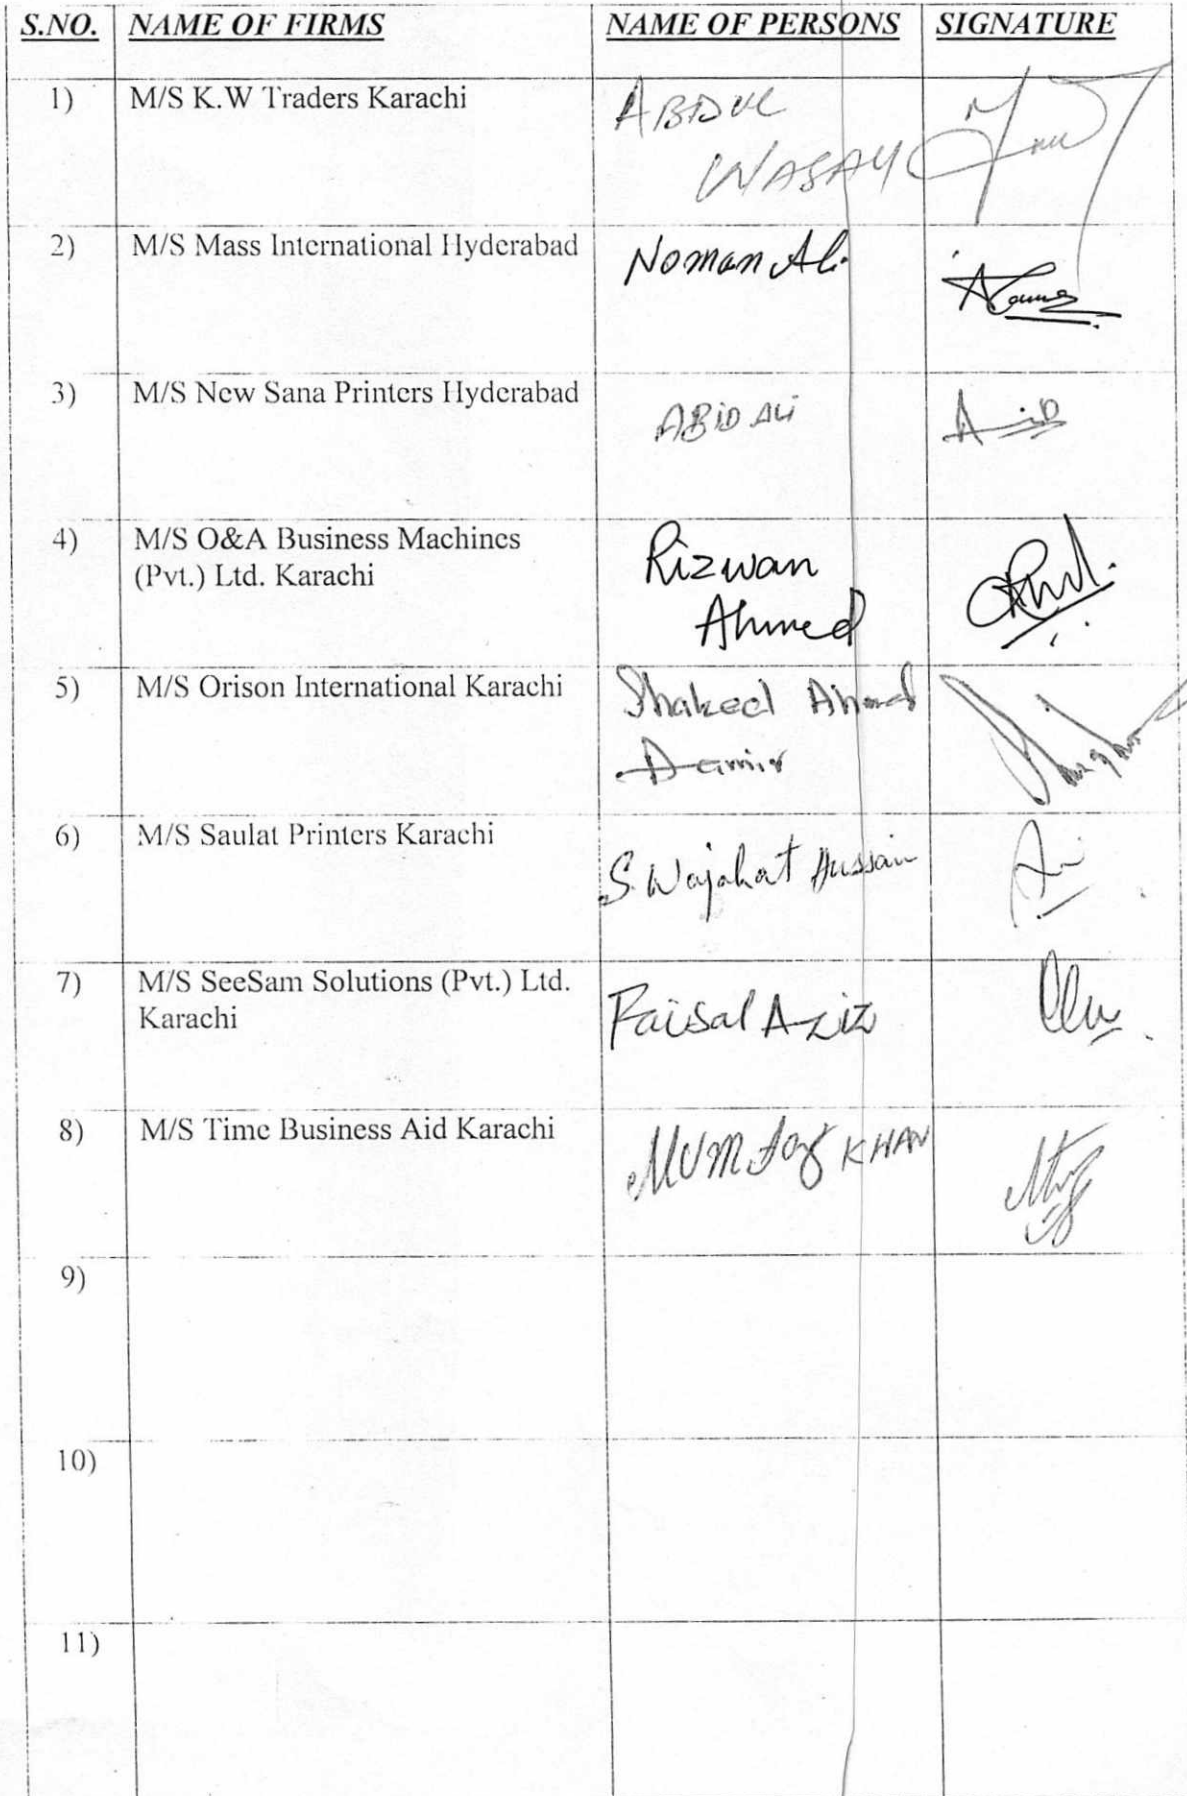 S.NO. NAME OF FIRMS NAME OF PERSONS SIGNATURE
1) M/S K.W Traders Karachi ABDUL
WASAY
2) M/S Mass International Hyderabad Noman Ali
3) M/S New Sana Printers Hyderabad ABID ALI
4) M/S O&A Business Machines Rizwan
(Pvt.) Ltd. Karachi Ahmed
5) M/S Orison International Karachi Shakeel Ahmed
6) M/S Saulat Printers Karachi S. Wajahat Hussain
7) M/S SeeSam Solutions (Pvt.) Ltd. Faisal Aziz
Karachi
8) M/S Time Business Aid Karachi MUMtaz KHAN
9)
10)
11)